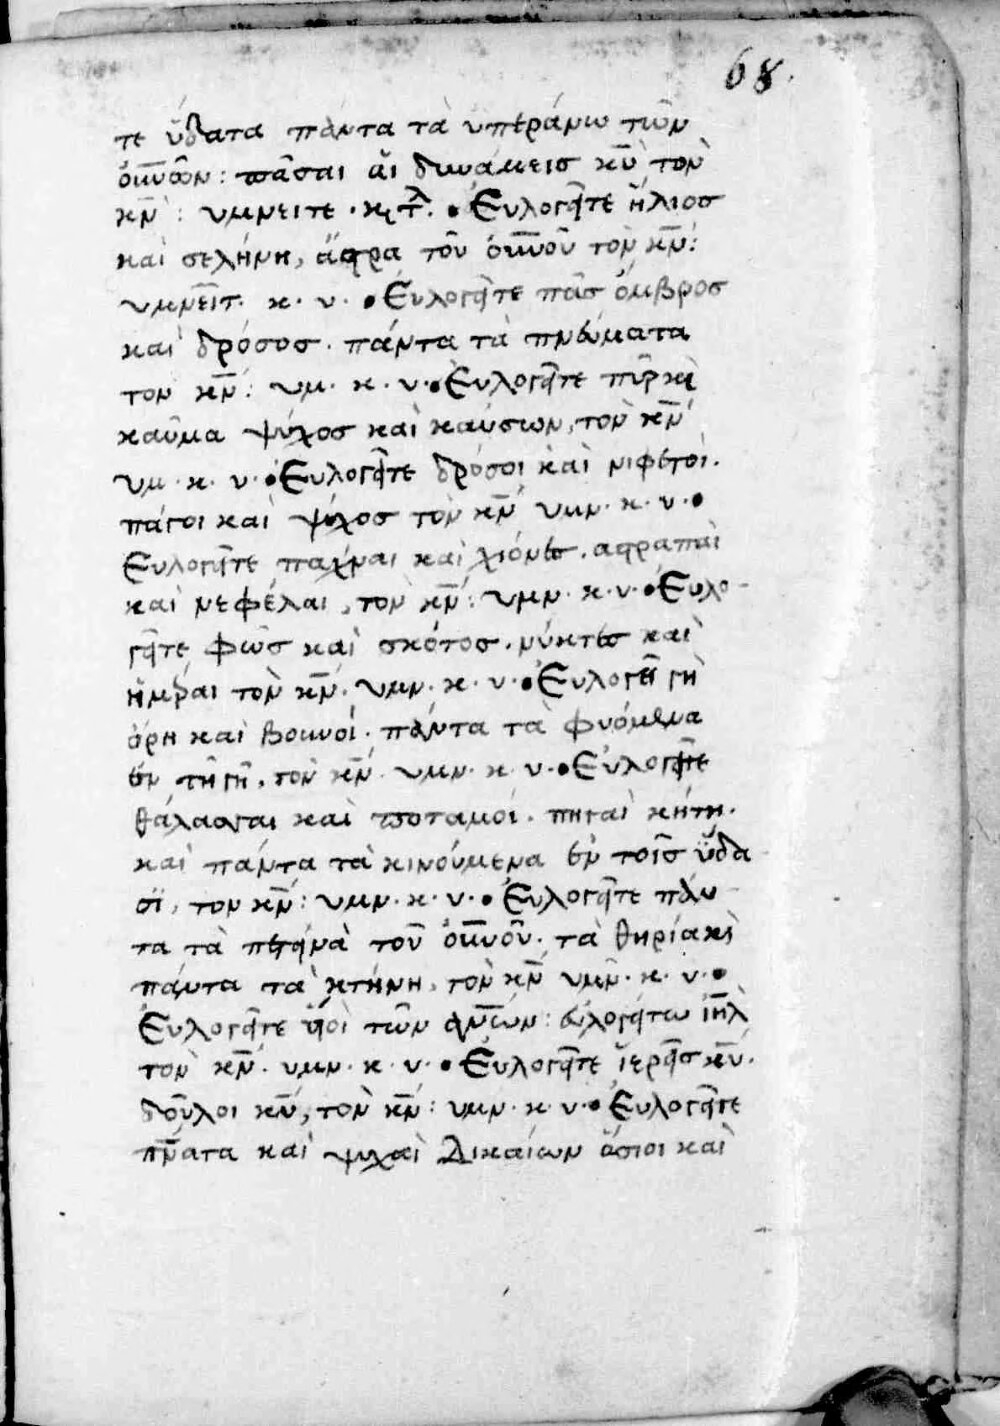 68.
τε ὕδατα πάντα τὰ ὑπεράνω τῶν
οὐνῶν: πᾶσαι αἱ δυνάμεισ κῦ τὸν
κν̄: υμνειτε · κ τλ. • Ευλογεῖτε ἥλιοσ
καὶ σελήνη, ἄστρα τοῦ οὐνοῦ τὸν κν̄:
υμνεῖτ. κ. υ. • Ευλογεῖτε πᾶσ ὄμβροσ
καὶ δρόσοσ. πάντα τὰ πνεύματα
τον κν̄: υμ. κ. υ. • Ευλογεῖτε πῦρ καὶ
καῦμα ψύχοσ καὶ καύσων, τὸν κν̄
υμ. κ. υ. • Ευλογεῖτε δρόσοι καὶ νιφετοὶ.
πάγοι καὶ ψύχοσ τὸν κν̄ υμν. κ. υ. •
Ευλογεῖτε παχναι καὶ χιόνεσ. αστραπαὶ
καὶ νεφέλαι, τὸν κν̄: υμν. κ. υ. • Ευλο-
γεῖτε φῶσ καὶ σκότοσ. νύκτεσ καὶ
ἡμέραι τὸν κν̄. υμν. κ. υ. • Ευλογεῖ γῆ
όρη καὶ βουνοί. πάντα τὰ φυόμενα
ἐν τῆ γῆ, τὸν κν̄. υμν. κ. υ. • Ευλογεῖτε
θάλασσαι καὶ ποταμοί. πηγαὶ κήτη.
καὶ πάντα τὰ κινούμενα ἐν τοῖσ ὕδα
σϊ, τον κν̄: υμν. κ. υ. • Ευλογεῖτε πάν
τα τὰ πετεινὰ τοῦ οὐνοῦ. τὰ θηρία καὶ
πάντα τὰ κτήνη, τὸν κν̄ υμν. κ. υ. •
Ευλογεῖτε υἱοὶ τῶν ανων̄: ευλογείτω ιηλ̄
τὸν κν̄. υμν. κ. υ. • Ευλογεῖτε ἱερεῖσ κῡ.
δοῦλοι κῡ, τὸν κν̄: υμν. κ. υ. • Ευλογεῖτε
πνατα καὶ ψυχαὶ Δικαίων ὅσιοι καὶ